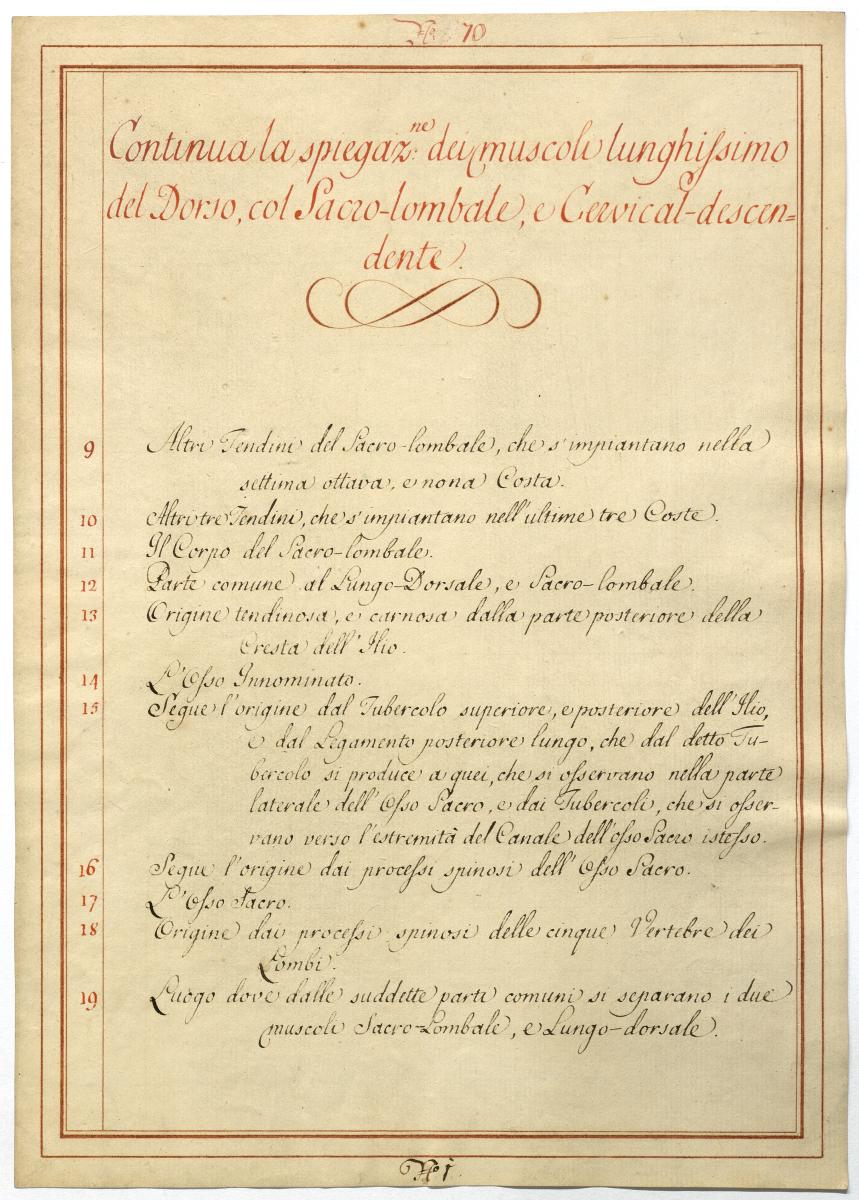 No. 70
Continua la spiegaz.ne dei muscoli lunghissimo
del Dorso, col Sacro-lombale, e Cervical-descen=
dente.
9 Altri Tendini del Sacro-lombale, che s'impiantano nella
settima ottava, e nona Costa.
10 Altri tre Tendini, che s'impiantano nell'ultime tre Coste.
11 Il Corpo del Sacro-lombale.
12 Parte comune al Lungo-Dorsale, e Sacro-lombale.
13 Origine tendinosa, e carnosa dalla parte posteriore della
Cresta dell'Ilio.
14 L'Osso Innominato.
15 Segue l'origine dal Tubercolo superiore, e posteriore dell'Ilio,
e dal Legamento posteriore lungo, che dal detto Tu-
bercolo si produce a quei, che si osservano nella parte
laterale dell'Osso Sacro, e dai Tubercoli, che si osser-
vano verso l'estremità del Canale dell'osso Sacro istesso.
16 Segue l'origine dai processi spinosi dell'Osso Sacro.
17 L'Osso Sacro.
18 Origine dai processi spinosi delle cinque Vertebre dei
Lombi.
19 Luogo dove dalle suddette parti comuni si separano i due
muscoli Sacro-Lombale, e Lungo-dorsale.
No. 1.